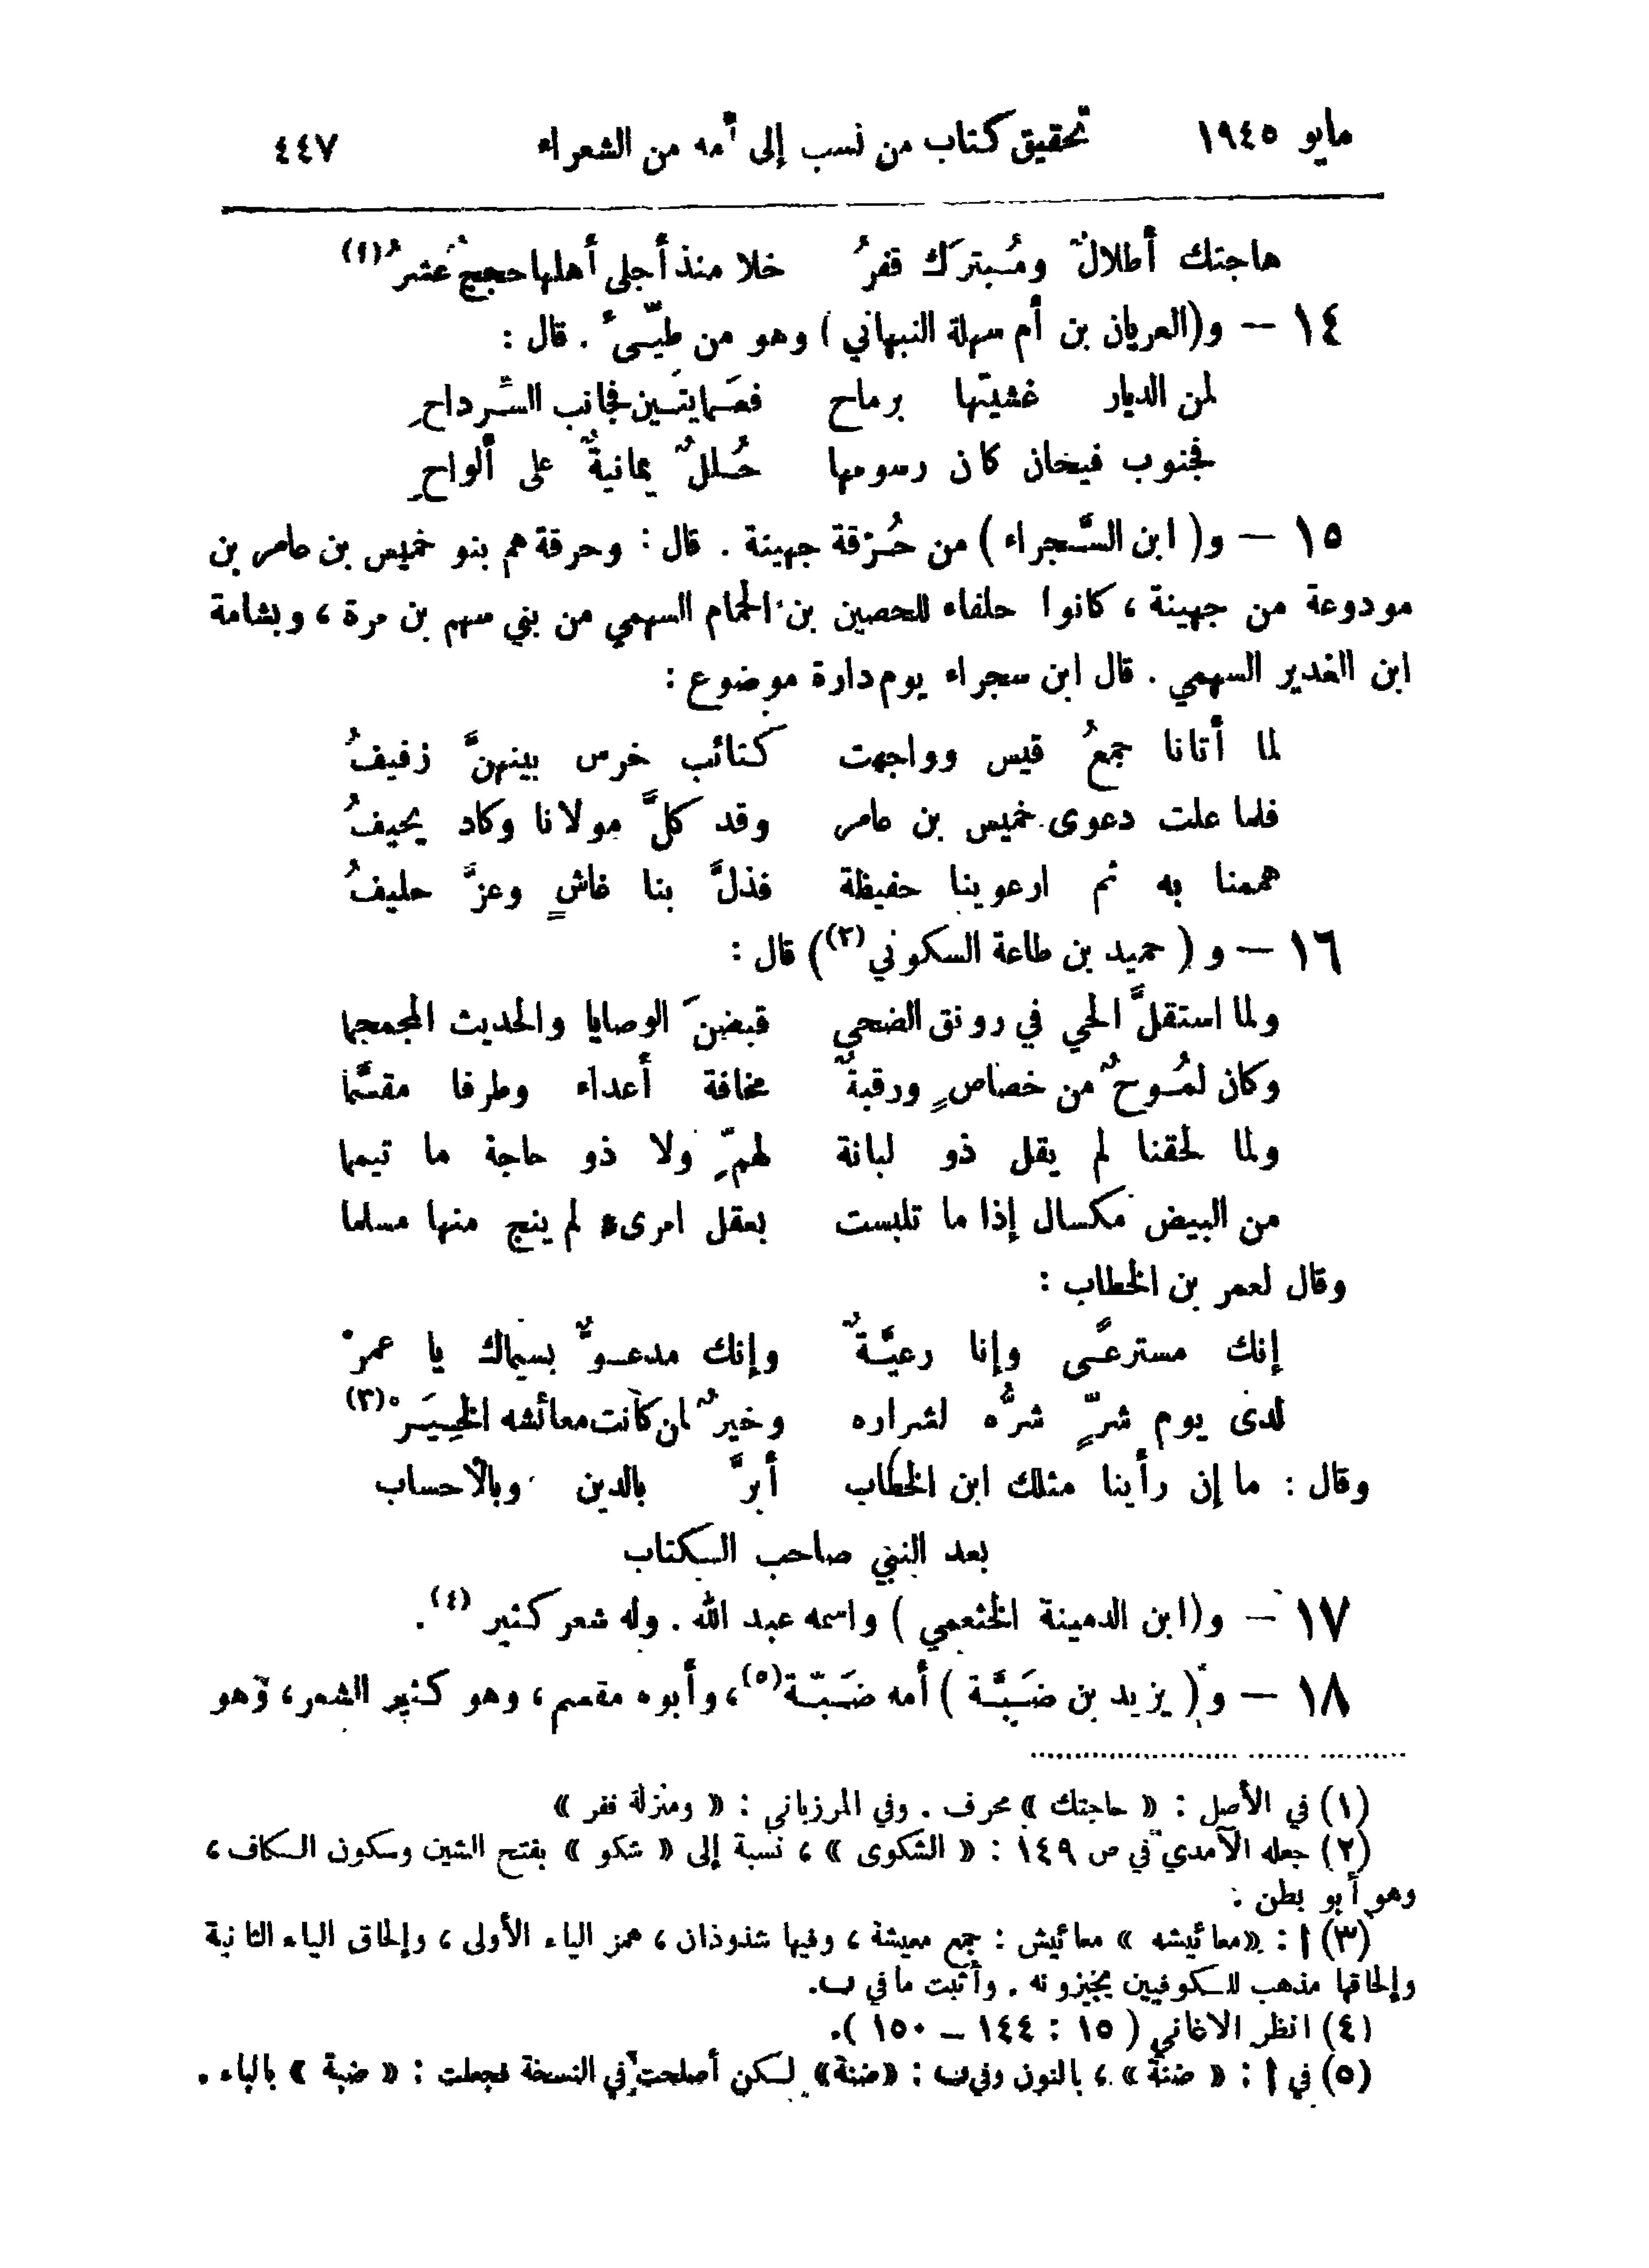 مايو ١٩٤٥ تحقيق كتاب من نسب إلى أمه من الشعراء ٤٤٧
هاجتك أطلالٌ ومُبتركٌ قفرُ خلا منذ أجلى أهلها حججٌ عشرُ (١)
١٤ — و(العريان بن أم سهلة النبهاني) وهو من طيّئ. قال:
لمن الديار غشيتها برماح فعمايتين فجانب السّرداحِ
فجنوب فيخان كان رسومها حُللٌ يمانيةٌ على ألواحِ
١٥ — و(ابن السَّجراء) من حُرْقة جهينة. قال: وحرقة هم بنو خميس بن عامر بن
مودوعة من جهينة، كانوا حلفاء للحصين بن الحمام السهمي من بني سهم بن مرة، وبشامة
ابن الغدير السهمي. قال ابن سجراء يوم دارة موضوع:
لما أتانا جمعُ قيس وواجهت كتائب خرس بينهنَّ زفيفُ
فلما علت دعوى خميس بن عامر وقد كلَّ مولانا وكاد يحيفُ
هممنا به ثم ارعوينا حفيظة فذلَّ بنا غاشٍ وعزَّ حليفُ
١٦ — و (حميد بن طاعة السكوني (٢)) قال:
ولما استقلَّ الحي في رونق الضحى قبضنَ الوصايا والحديث المجمجما
وكان لمُوحٌ من خصاصٍ ورقبةٌ مخافة أعداء وطرفا مقسَّما
ولما لحقنا لم يقل ذو لبانة لهمّ ولا ذو حاجة ما تيمما
من البيض مكسال إذا ما تلبست بعقل امرىء لم ينج منها مسلما
وقال لعمر بن الخطاب:
إنك مسترعًى وإنا رعيَّةٌ وإنك مدعوٌّ بسيماك يا عمرْ
لدى يوم شرٍّ شرُّه لشراره وخيرٌ لمن كانت معائشه الخِيَرْ (٣)
وقال: ما إن رأينا مثلك ابن الخطاب أبرَّ بالدين وبالأحساب
بعد النبي صاحب الكتاب
١٧ — و(ابن الدمينة الخثعمي) واسمه عبد الله. وله شعر كثير (٤).
١٨ — و(يزيد بن ضَبَّة) أمه ضَبّة (٥)، وأبوه مقسم، وهو كثير الشعر، وهو
(١) في الأصل: «حاجتك» محرف. وفي المرزباني: «ومنزلة قفر»
(٢) جعله الآمدي في ص ١٤٩: «الشكوى»، نسبة إلى «شكو» بفتح الشين وسكون الكاف،
وهو أبو بطن.
(٣) ا: «معائيشه» معائيش: جمع معيشة، وفيها شذوذان، همز الياء الأولى، وإلحاق الياء الثانية
وإلحاقها مذهب للكوفيين يجيزونه. وأثبت ما في ب.
(٤) انظر الاغاني (١٥: ١٤٤ — ١٥٠).
(٥) في ا: «ضنة»، بالنون وفي ب: «ضنة» لكن أصلحت في النسخة فجعلت: «ضبة» بالباء.